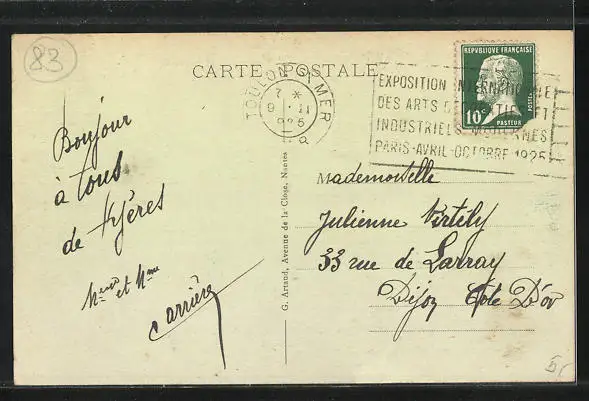 83
CARTE POSTALE
TOULON S/MER
7 *
9 · II
1925
VAR
EXPOSITION INTERNATIONALE
DES ARTS DECORATIFS ET
INDUSTRIELS MODERNES
PARIS-AVRIL-OCTOBRE 1925
REPVBLIQUE FRANÇAISE
POSTES
10c
PASTEUR
Bonjour
à tous
de Hyères
et Mme
Carrière
G. Artaud, Avenue de la Close, Nantes
Mademoiselle
Julienne
33 rue de Larray
Dijon Cote D'or